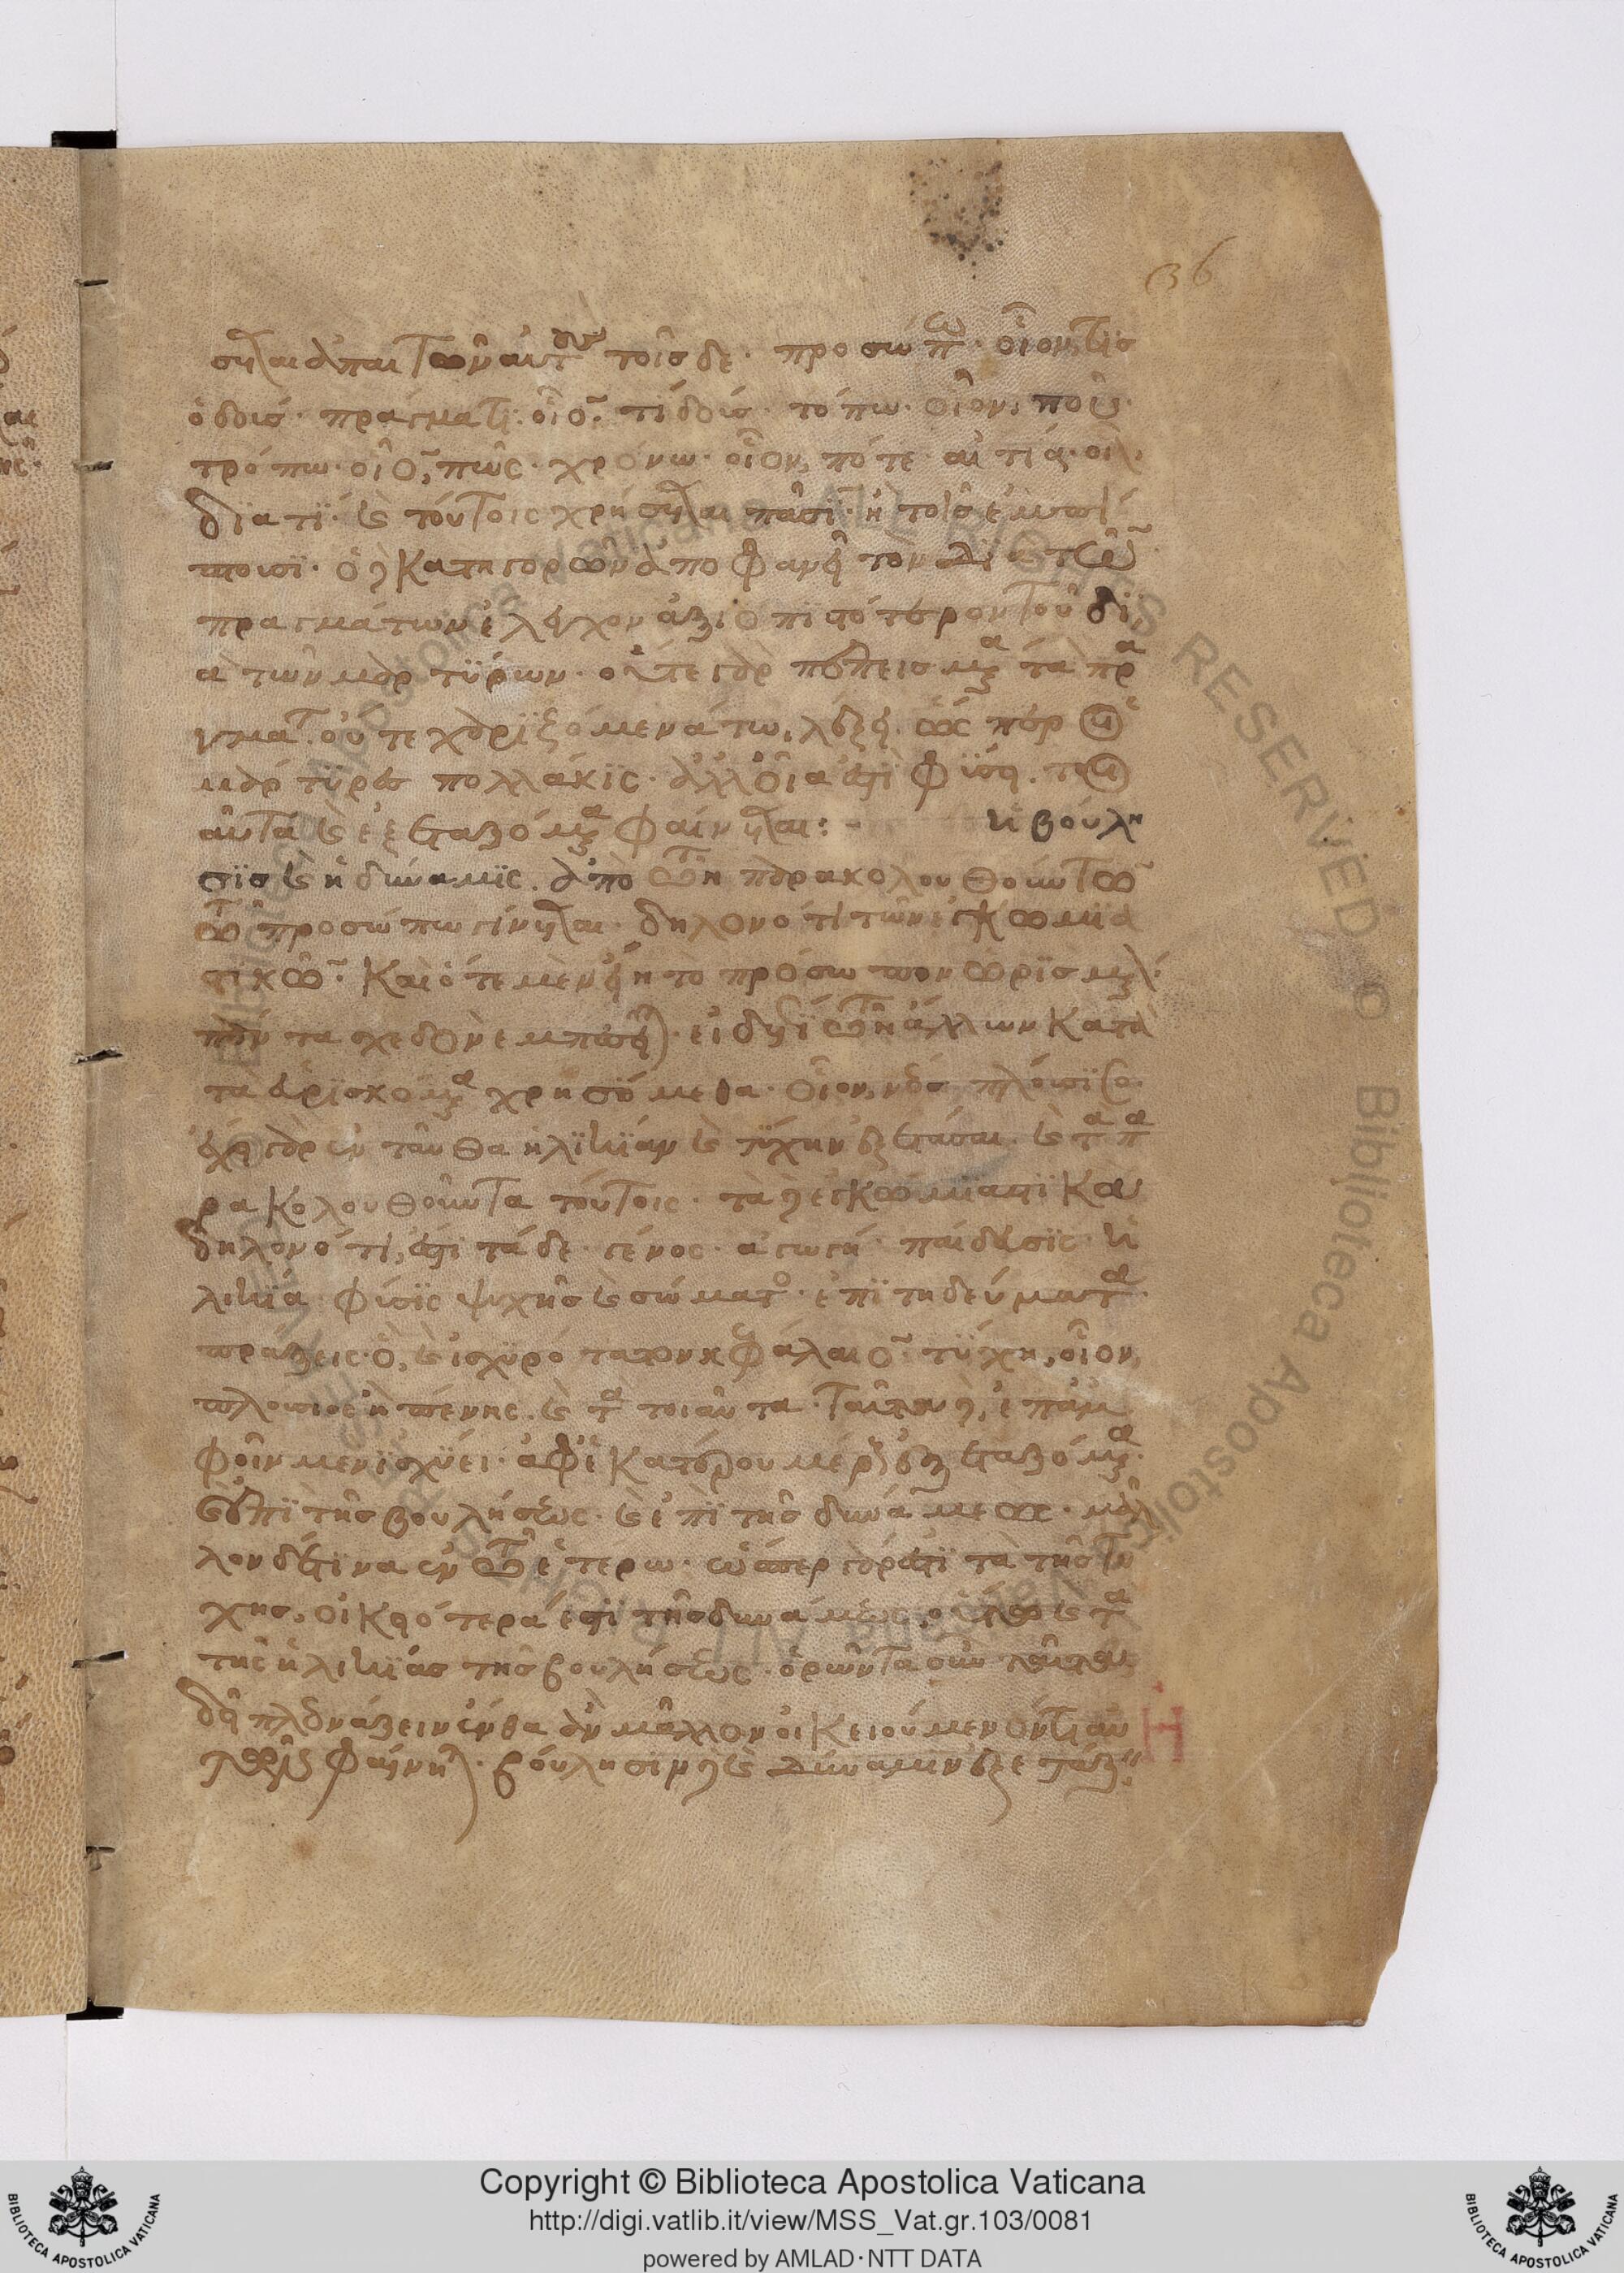 36
σηται ἀπαιτῶν αὐτὸν τοῖσδε· προσώπω· οἷον, τίς
ὁ δούς· πράγματι· οἷον, τί δούς· τόπω· οἷον, ποῦ·
τρόπω· οἷον, πῶς· χρόνω· οἷον, πότε· αἰτία· οἷον,
διατί· καὶ τούτοις χρήσηται πᾶσιν ἢ τοῖς ἐμπί
πτουσι· ὁ δὲ κατηγορῶν ἀποφανεῖ τὸν διὰ τῶν
πραγμάτων ἔλεγχον ἀξιοπιστότερον τοῦ δι
ὰ τῶν μαρτύρων· οὔτε γὰρ πειθόμενα τὰ πρά
γματα οὔτε χαριζόμενά τω, λέξει· ὡς παρ
μάρτυρες πολλάκις· ἀλλ' οἷά ἐστι φύσει· τοι
αῦτα καὶ ἐξεταζόμενα φαίνηται: - ἡ βούλη
σις καὶ ἡ δύναμις. ἀπὸ τῶν παρακολουθούντων
τῶ προσώπω γίνηται· δηλονότι τῶν ἐγκωμια
στικῶν· Καὶ ὅτε μὲν εἴη τὸ πρόσωπον ὡρισμένον·
πάντα σχεδὸν ἐμπεσεῖται· εἰ δέ τι τῶν ἄλλων κατὰ
τὰ εὑρισκόμενα χρησόμεθα· οἷον, νέος πλούσιος·
ἔχει γὰρ ἐνταῦθα ἡλικίαν καὶ τύχην ἐξετάσαι· καὶ τὰ πα
ρακολουθοῦντα τούτοις· τὰ δὲ ἐγκωμιαστικὰ
δηλονότι, ἐστὶ τάδε· γένος· ἀγωγή· παίδευσις· ἡ
λικία· φύσις ψυχῆς καὶ σώματος· ἐπιτηδεύματα·
πράξεις· ὃ καὶ ἰσχυρότατον κεφάλαιον· τύχη, οἷον,
πλούσιος ἢ πένης· καὶ τὰ τοιαῦτα· ταῦτα δὲ, ἐπ' ἀμ
φοῖν μὲν ἰσχύει· ἀφ' ἑκατέρου μέρους ἐξεταζόμενα·
καὶ ἐπὶ τῆς βουλήσεως· καὶ ἐπὶ τῆς δυνάμεως· μᾶλ
λον δ' ἔστιν ἃ ἐν τῶ ἑτέρω· ὥσπερ γάρ ἐστι τὰ τῆς τύ
χης, οἰκειότερά ἐστι τῆς δυνάμεως, οὕτω καὶ τὰ
τῆς ἡλικίας τῆς βουλήσεως· ὁρῶντα οὖν
δεῖ πλεονάζειν ἔνθα ἂν μᾶλλον οἰκειούμενόν τι αὐ
φαίνηται· βούλησιν δὲ καὶ δύναμιν ἐξετάζ
Η